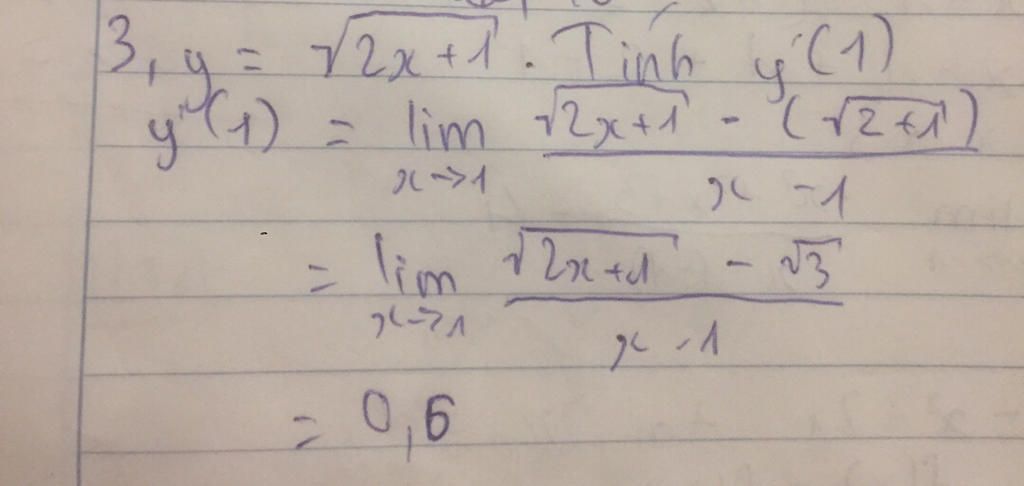 3, y = √(2x+1) . Tính y'(1)
y'(1) = lim x→1 (√(2x+1) - (√(2+1))) / (x - 1)
= lim x→1 (√(2x+1) - √3) / (x - 1)
= 0,6